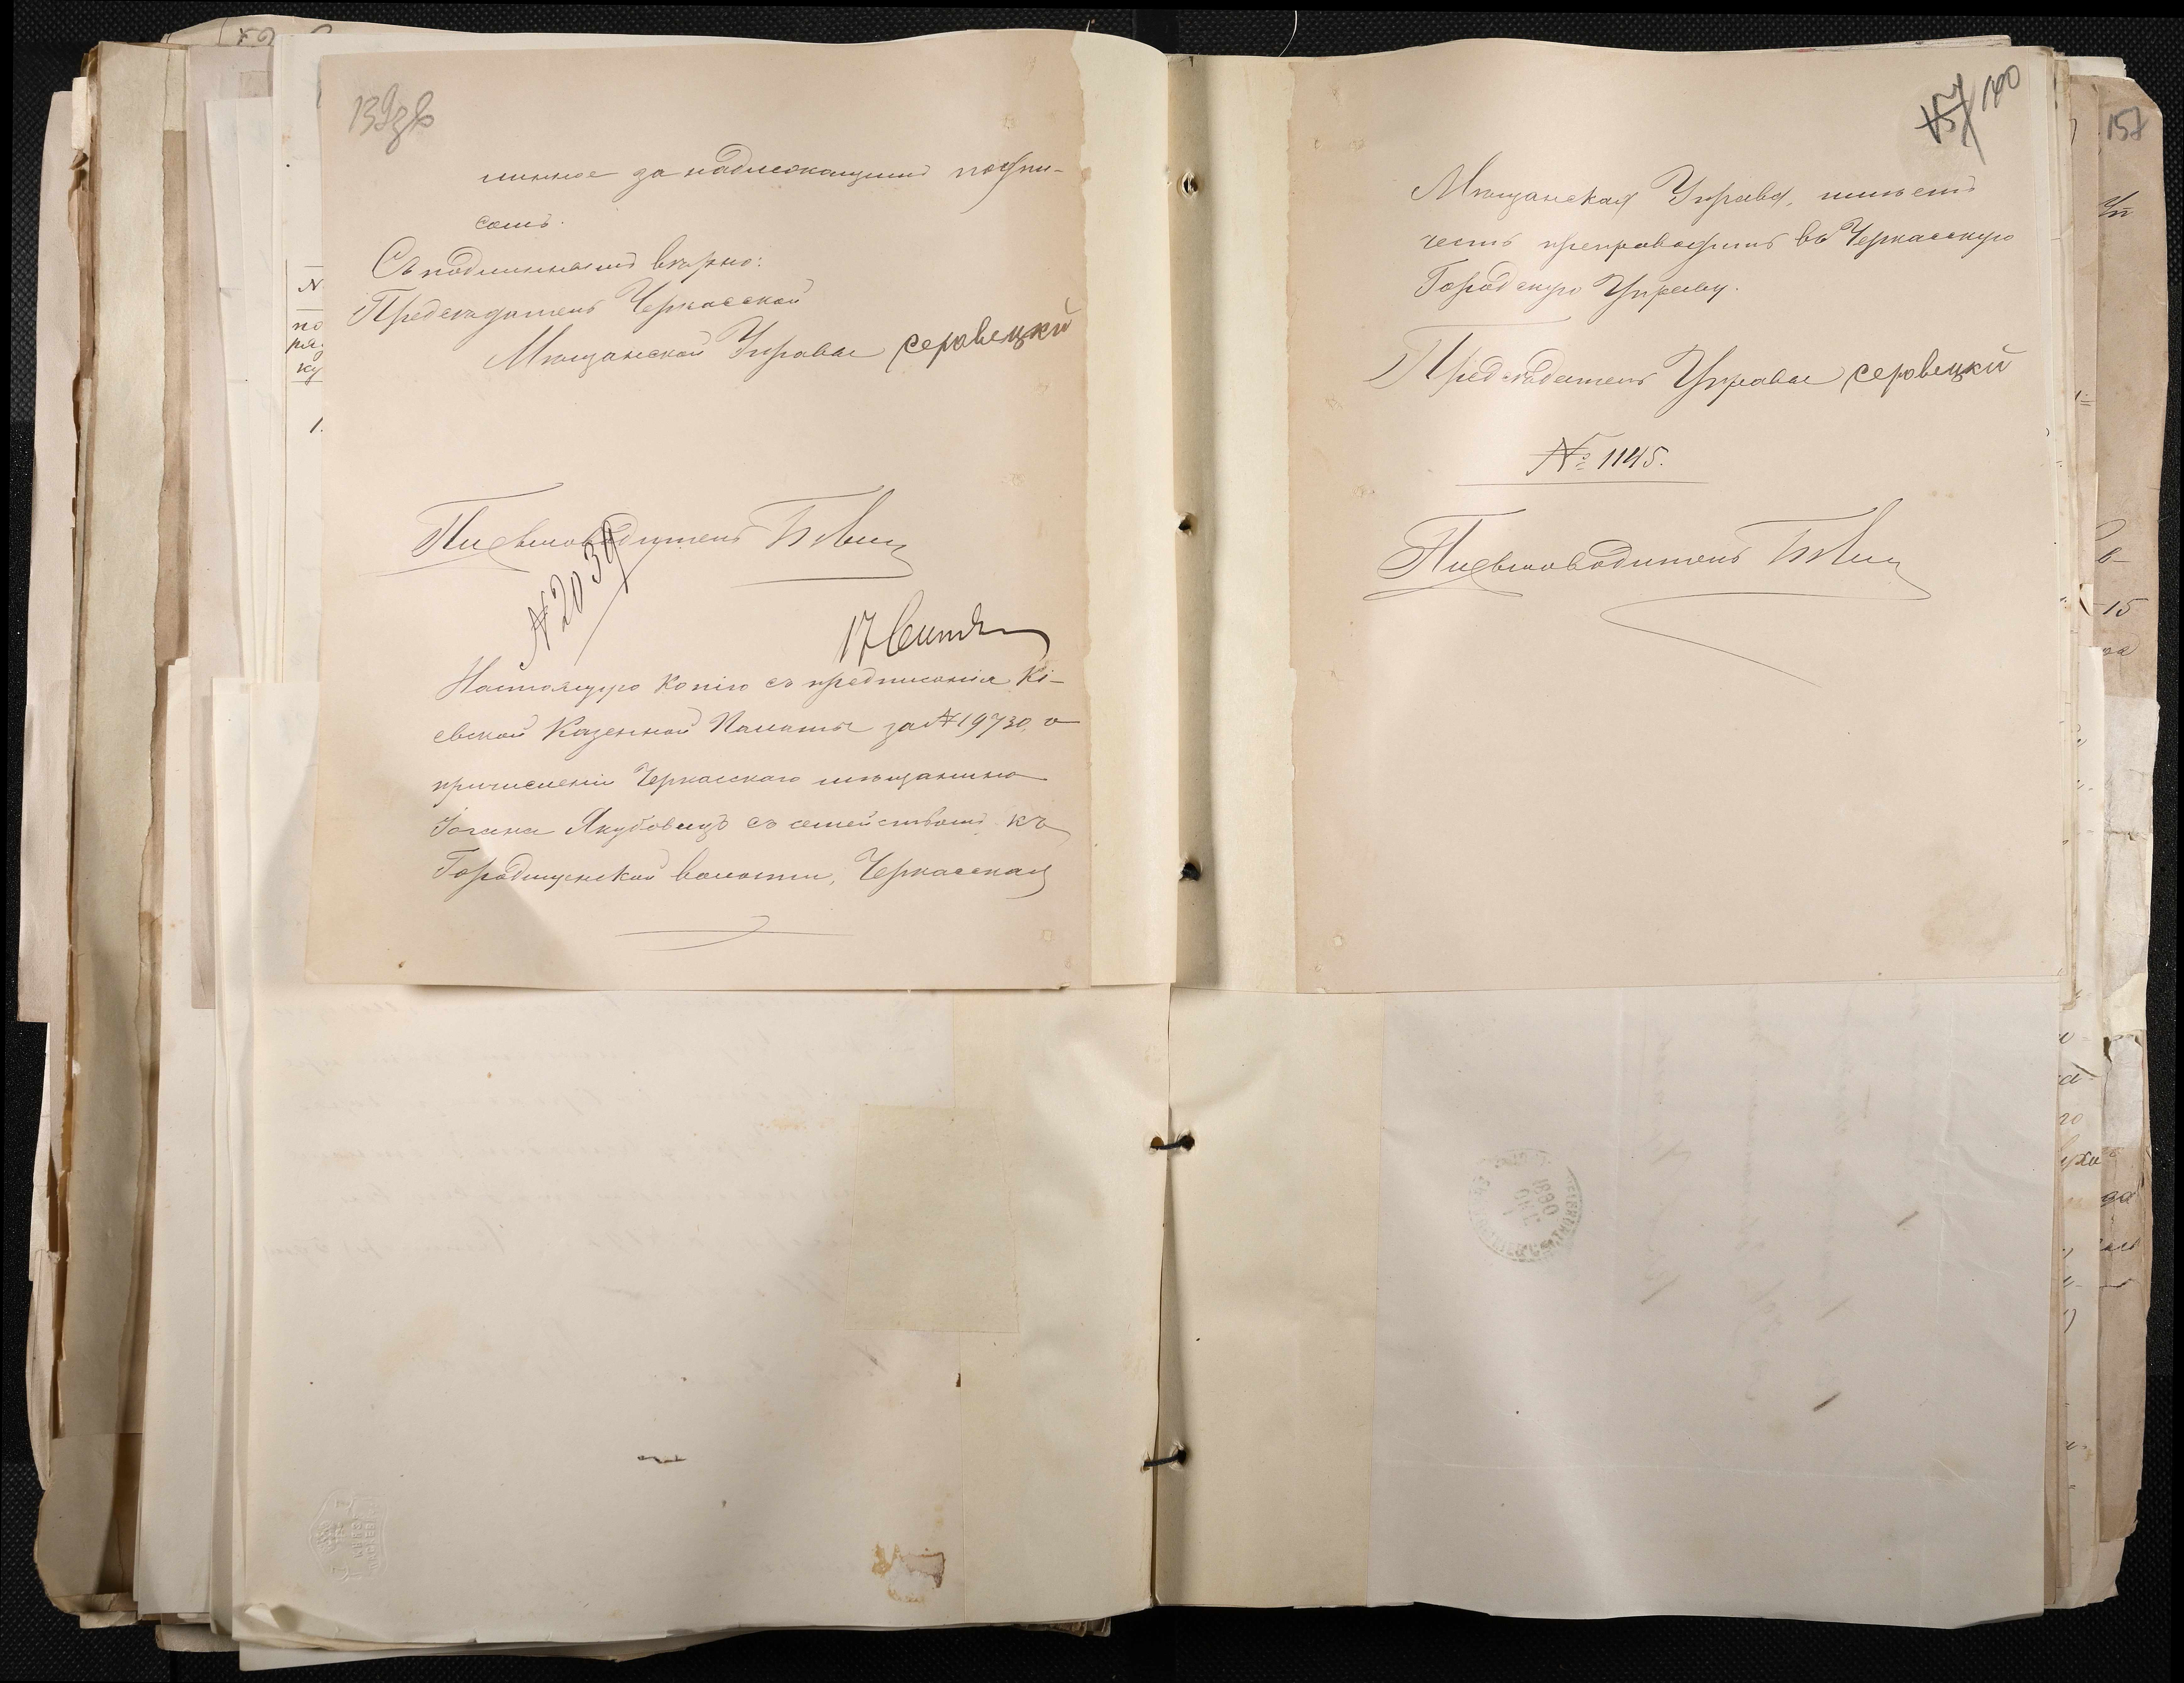 139зв
линное за надлежащимъ подпи-
сомъ.
Съ подлиннымъ вѣрно:
Предсѣдатель Черкасской
Мѣщанской Управы Серовецкій
Письмоводитель
№ 2039
17 Сентя
Настоящую копію съ предписанія Кі-
евской Казенной Палаты за № 19730, о
причисленіи Черкасскаго мѣщанина
Іогана Якубовичъ съ семействомъ къ
Городищенской волости, Черкасская
157 140
Мѣщанская Управа, имѣетъ
честь препроводить въ Черкасскую
Городскую Управу.
Предсѣдатель Управы Серовецкій
№ 1145.
Письмоводитель
1880
157
№
по
ря
ку
1.